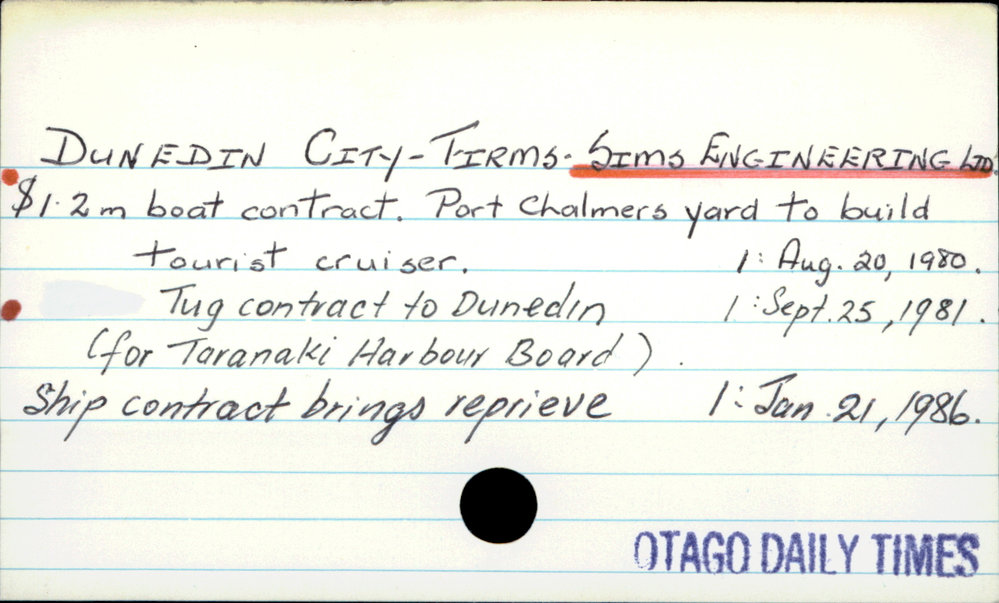 DUNEDIN CITY-FIRMS- SIMS ENGINEERING LTD.
$1.2m boat contract. Port Chalmers yard to build
tourist cruiser. 1: Aug. 20, 1980.
Tug contract to Dunedin 1: Sept. 25, 1981.
(for Taranaki Harbour Board).
Ship contract brings reprieve 1: Jan. 21, 1986.
OTAGO DAILY TIMES